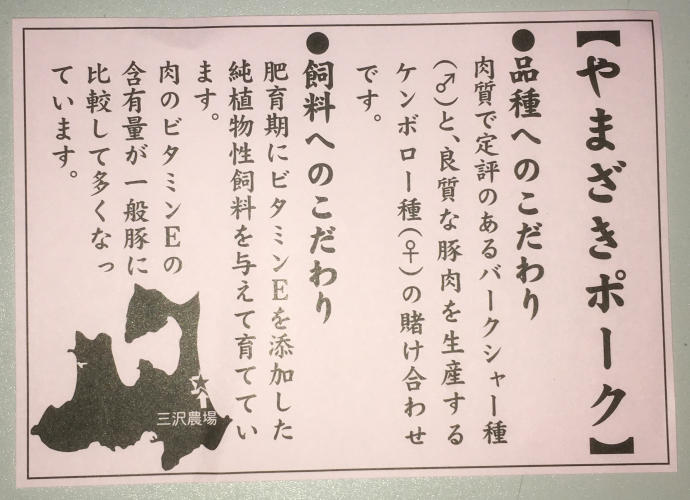 【やまざきポーク】
●品種へのこだわり
肉質で定評のあるバークシャー種
(♂)と、良質な豚肉を生産する
ケンボロー種(♀)の賭け合わせ
です。
●飼料へのこだわり
肥育期にビタミンEを添加した
純植物性飼料を与えて育ててい
ます。
肉のビタミンEの
含有量が一般豚に
比較して多くなっ
ています。
三沢農場